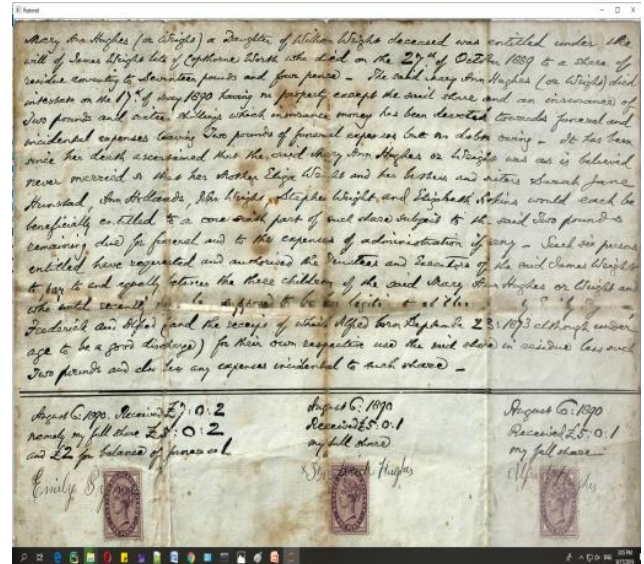 Mary Ann Hughes (or Wright) a Daughter of William Wright deceased was entitled under the
will of James Wright late of Copthorne Worth who died on the 27th of October 1889 to a share of
residue amounting to Seventeen pounds and four pence - The said Mary Ann Hughes (or Wright) died
intestate on the 17th of May 1890 having no property except the said share and an insurance of
Two pounds and sixteen shillings which insurance money has been devoted towards funeral and
incidental expenses leaving Two pounds of funeral expenses but no debts owing - It has been
since her death ascertained that the said Mary Ann Hughes or Wright was as is believed
never married so that her Mother Eliza Wright and her brothers and sisters Sarah Jane
Ann John Wright, Stephen Wright, and Elizabeth would each be
beneficially entitled to a one sixth part of such share subject to the said Two pounds
remaining due for funeral and to the expenses of administration if any - Such six persons
entitled have requested and authorised the Trustees and Executors of the said James Wright
to pay to and equally between the three children of the said Mary Ann Hughes or Wright and
who until recently supposed to be
Frederick and Alfred (and the receipt of which Alfred born September 23: 1873 although under
age to be a good discharge) for their own respective use the said share in residue less such
Two pounds and also less any expenses incidental to such share -
August 6: 1890. Received £7:0:2
namely my full share £5:0:2
and £2 for balance of funeral
Emily
August 6: 1890
Received £5:0:1
my full share
Hughes
August 6: 1890
Received £5:0:1
my full share
Alfred Hughes